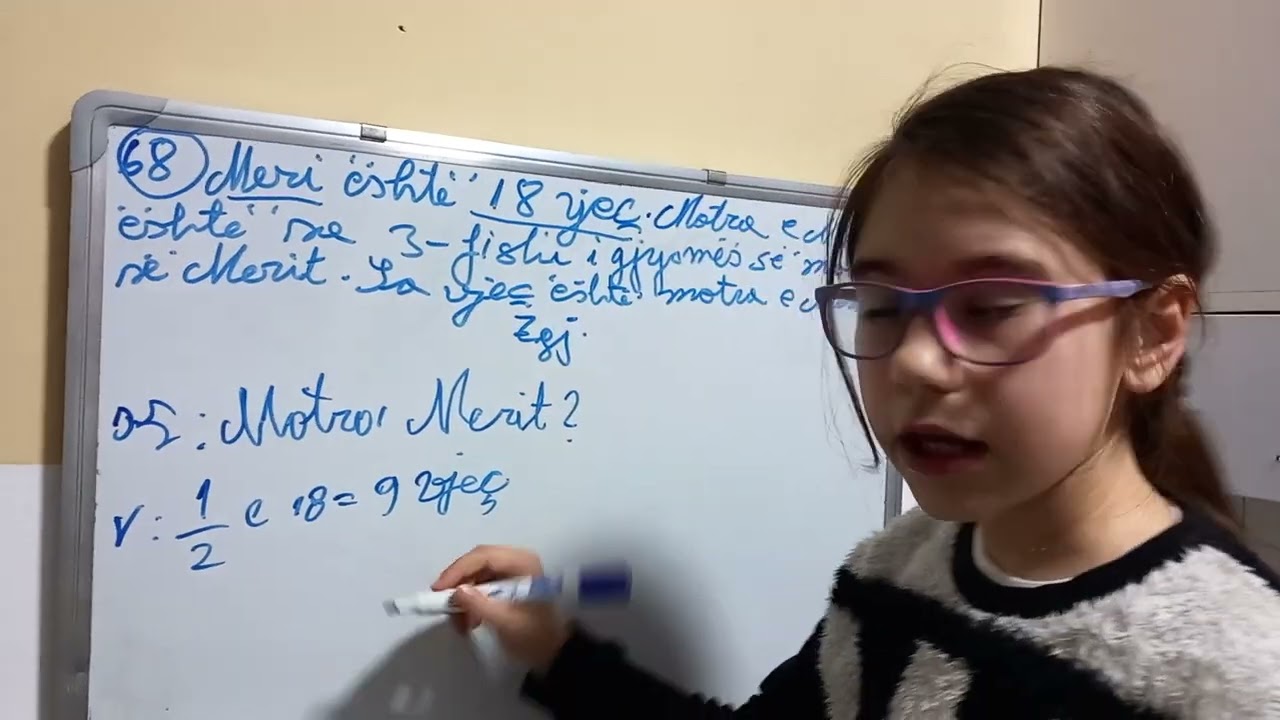 68 Meri është 18 vjeç. Motra e
është sa 3-fishi i gjysmës së
së Merit. Sa vjeç është motra e
Zgj.
Motra, Merit?
V: 1/2 e 18 = 9 vjeç